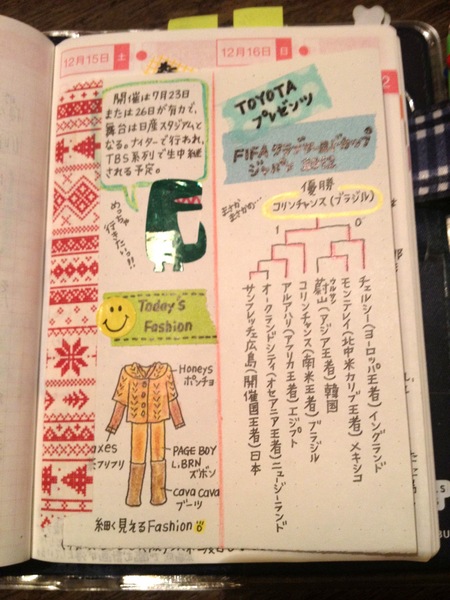 12月15日 土
開催は7月23日
または26日が有力で、
舞台は日産スタジアムと
なる。ナイターで行われ、
TBS系列で生中継
される予定。
めっちゃ
行きたい。!!
Today's
Fashion
Honeys
ポンチョ
axes
フリフリ
PAGE BOY
L.BRN
ズボン
cava cava
ブーツ
細く見えるFashion
12月16日 日
TOYOTA
プレゼンツ
FIFAクラブワールドカップ
ジャパン 2012
優勝
まさか
まさかの…
コリンチャンス(ブラジル)
1 0
チェルシー(ヨーロッパ王者)イングランド
モンテレイ(北中米カリブ王者)メキシコ
ウルサン
蔚山(アジア王者)韓国
コリンチャンス(南米王者)ブラジル
アルアハリ(アフリカ王者)エジプト
オークランドシティ(オセアニア王者)ニュージーランド
サンフレッチェ広島(開催国王者)日本